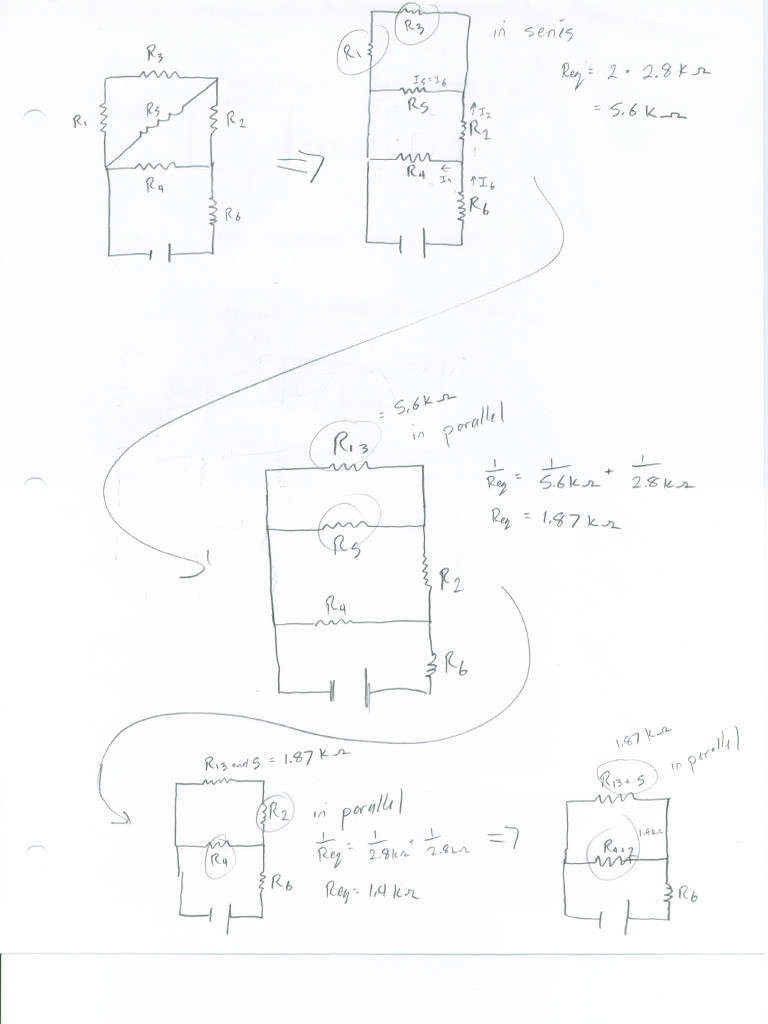 R3
R5
R1
R2
R4
R6
⇒
R1
R3
I5=I6
R5
↑I2
R2
R4
←
I4
↑I6
R6
in series
Req = 2 · 2.8KΩ
= 5.6KΩ
= 5.6KΩ
R13
in parallel
R5
R2
R4
R6
1/Req = 1/5.6KΩ + 1/2.8KΩ
Req = 1.87KΩ
R13 and 5 = 1.87KΩ
R2
R4
R6
in parallel
1/Req = 1/2.8KΩ + 1/2.8KΩ
Req = 1.4KΩ
⇒
1.87KΩ
R13+5
in parallel
1.4KΩ
R4+2
R6